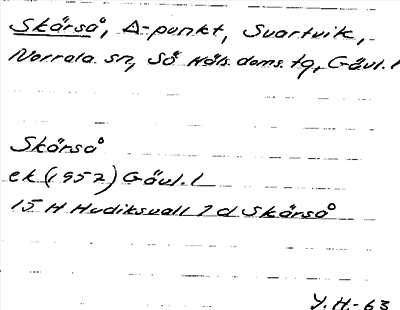 Skärså, Δ-punkt, Svartvik,
Norrala sn, Sö Häls. doms. tg, Gävl. l
Skärså
ek (1952) Gävl. l
15 H Hudiksvall 7 d Skärså
Y. H. - 63